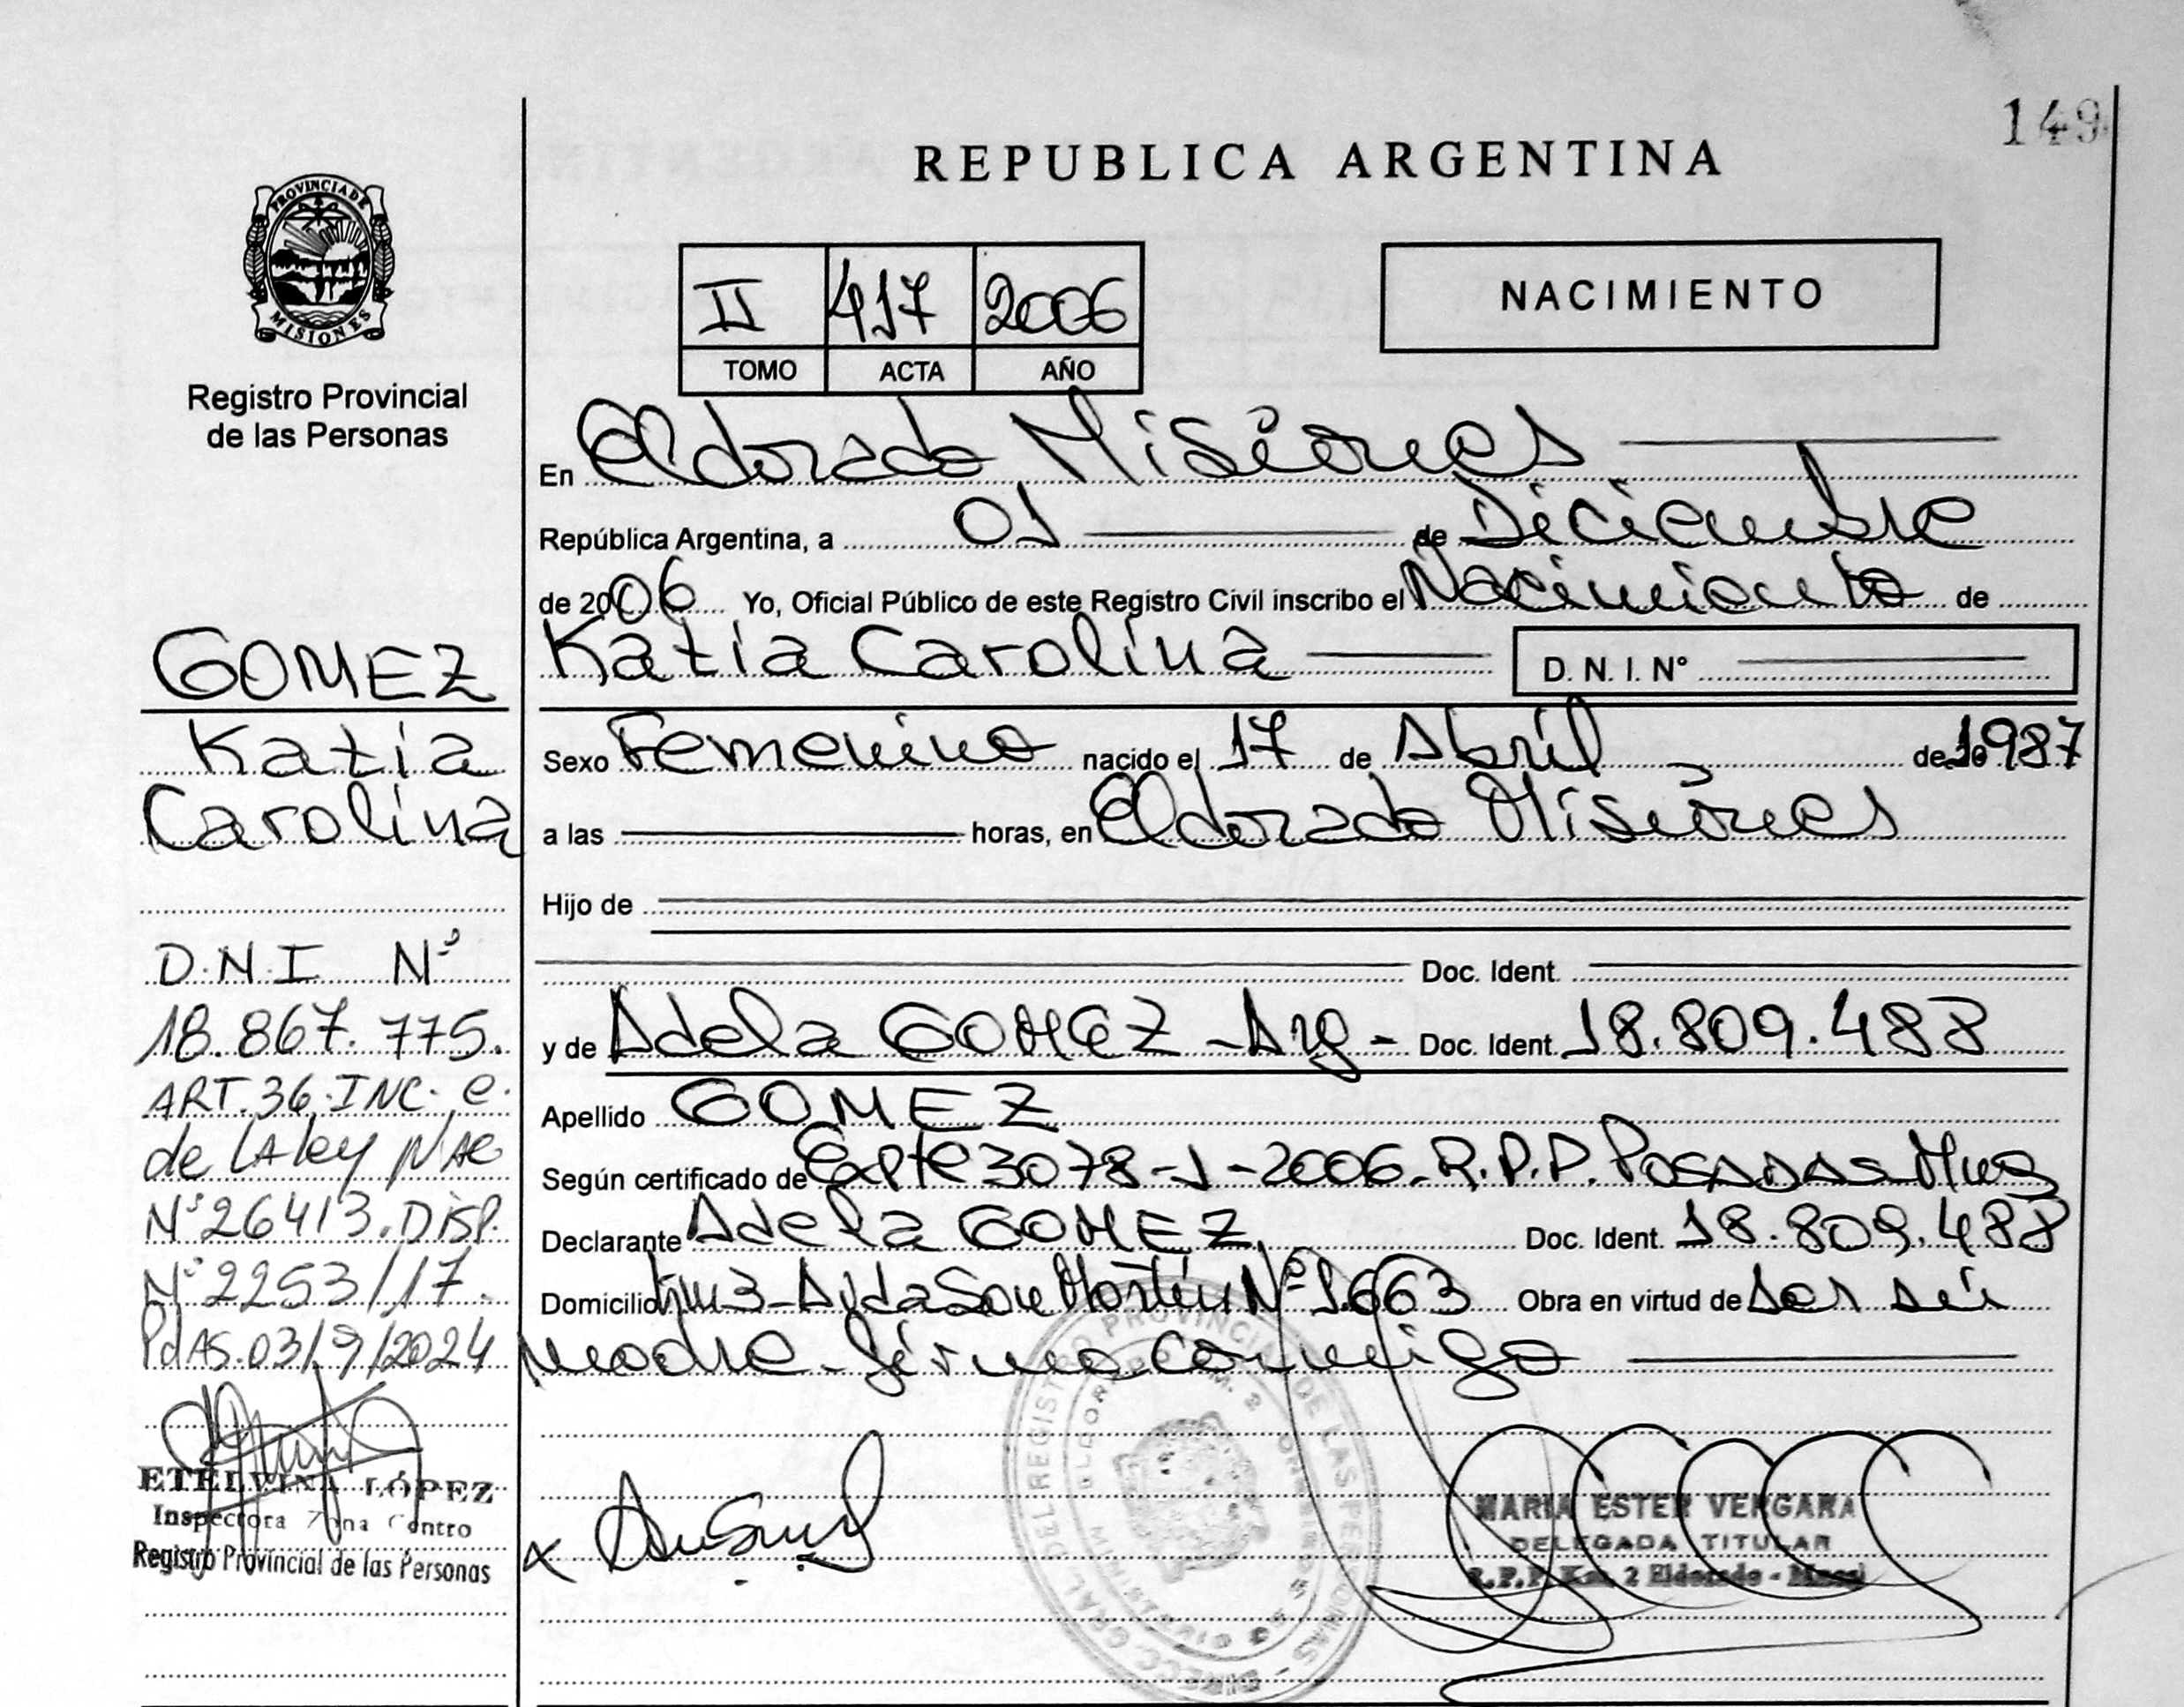 149
REPUBLICA ARGENTINA
PROVINCIA DE
MISIONES
Registro Provincial
de las Personas
II 417 2006
TOMO ACTA AÑO
NACIMIENTO
En Eldorado Misiones
República Argentina, a 01 de Diciembre
de 2006 Yo, Oficial Público de este Registro Civil inscribo el Nacimiento de
Katia Carolina D. N. I. N°
Sexo Femenino nacido el 17 de Abril de 1987
a las horas, en Eldorado Misiones
Hijo de
Doc. Ident.
y de Adela GOMEZ - Arg - Doc. Ident. 18.809.488
Apellido GOMEZ
Según certificado de Expte 3078-J-2006-R.P.P. Posadas Mnes
Declarante Adela GOMEZ Doc. Ident. 18.809.488
Domicilio km3-Avda San Martín Nº 1.663 Obra en virtud de ser su
madre firma conmigo
GOMEZ
Katia
Carolina
D.N.I Nº
18.867.775.
ART.36.INC. e.
de LA ley NAC
Nº26413.DISP.
Nº2253/17.
PdAS.03/9/2024
ETELVINA LÓPEZ
Inspectora Zona Centro
Registro Provincial de las Personas
MARIA ESTER VERGARA
DELEGADA TITULAR
R.P.P. Km. 2 Eldorado - Mnes
DIRECC. GRAL. DEL REGISTRO PROVINCIAL DE LAS PERSONAS